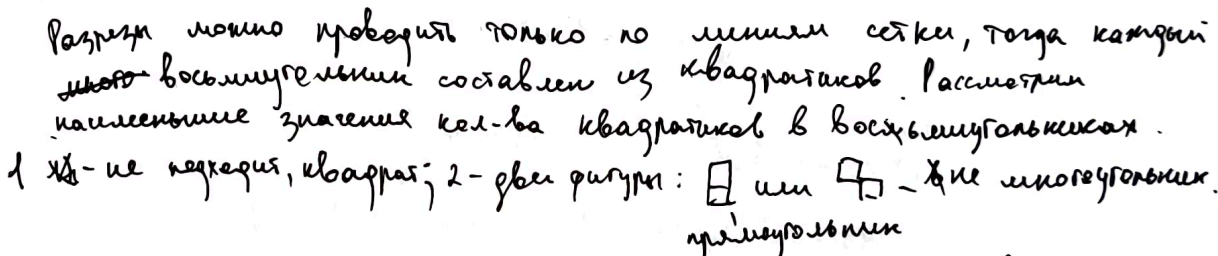 Разрезы можно проводить только по линиям сетки, тогда каждый
восьмиугельник составлен из квадратиков. Рассмотрим
наименьшие значения кол-ва квадратиков в восьмиугольниках.
1 - не подходит, квадрат; 2 - две фигуры: или - не многоугольник.
прямоугольник